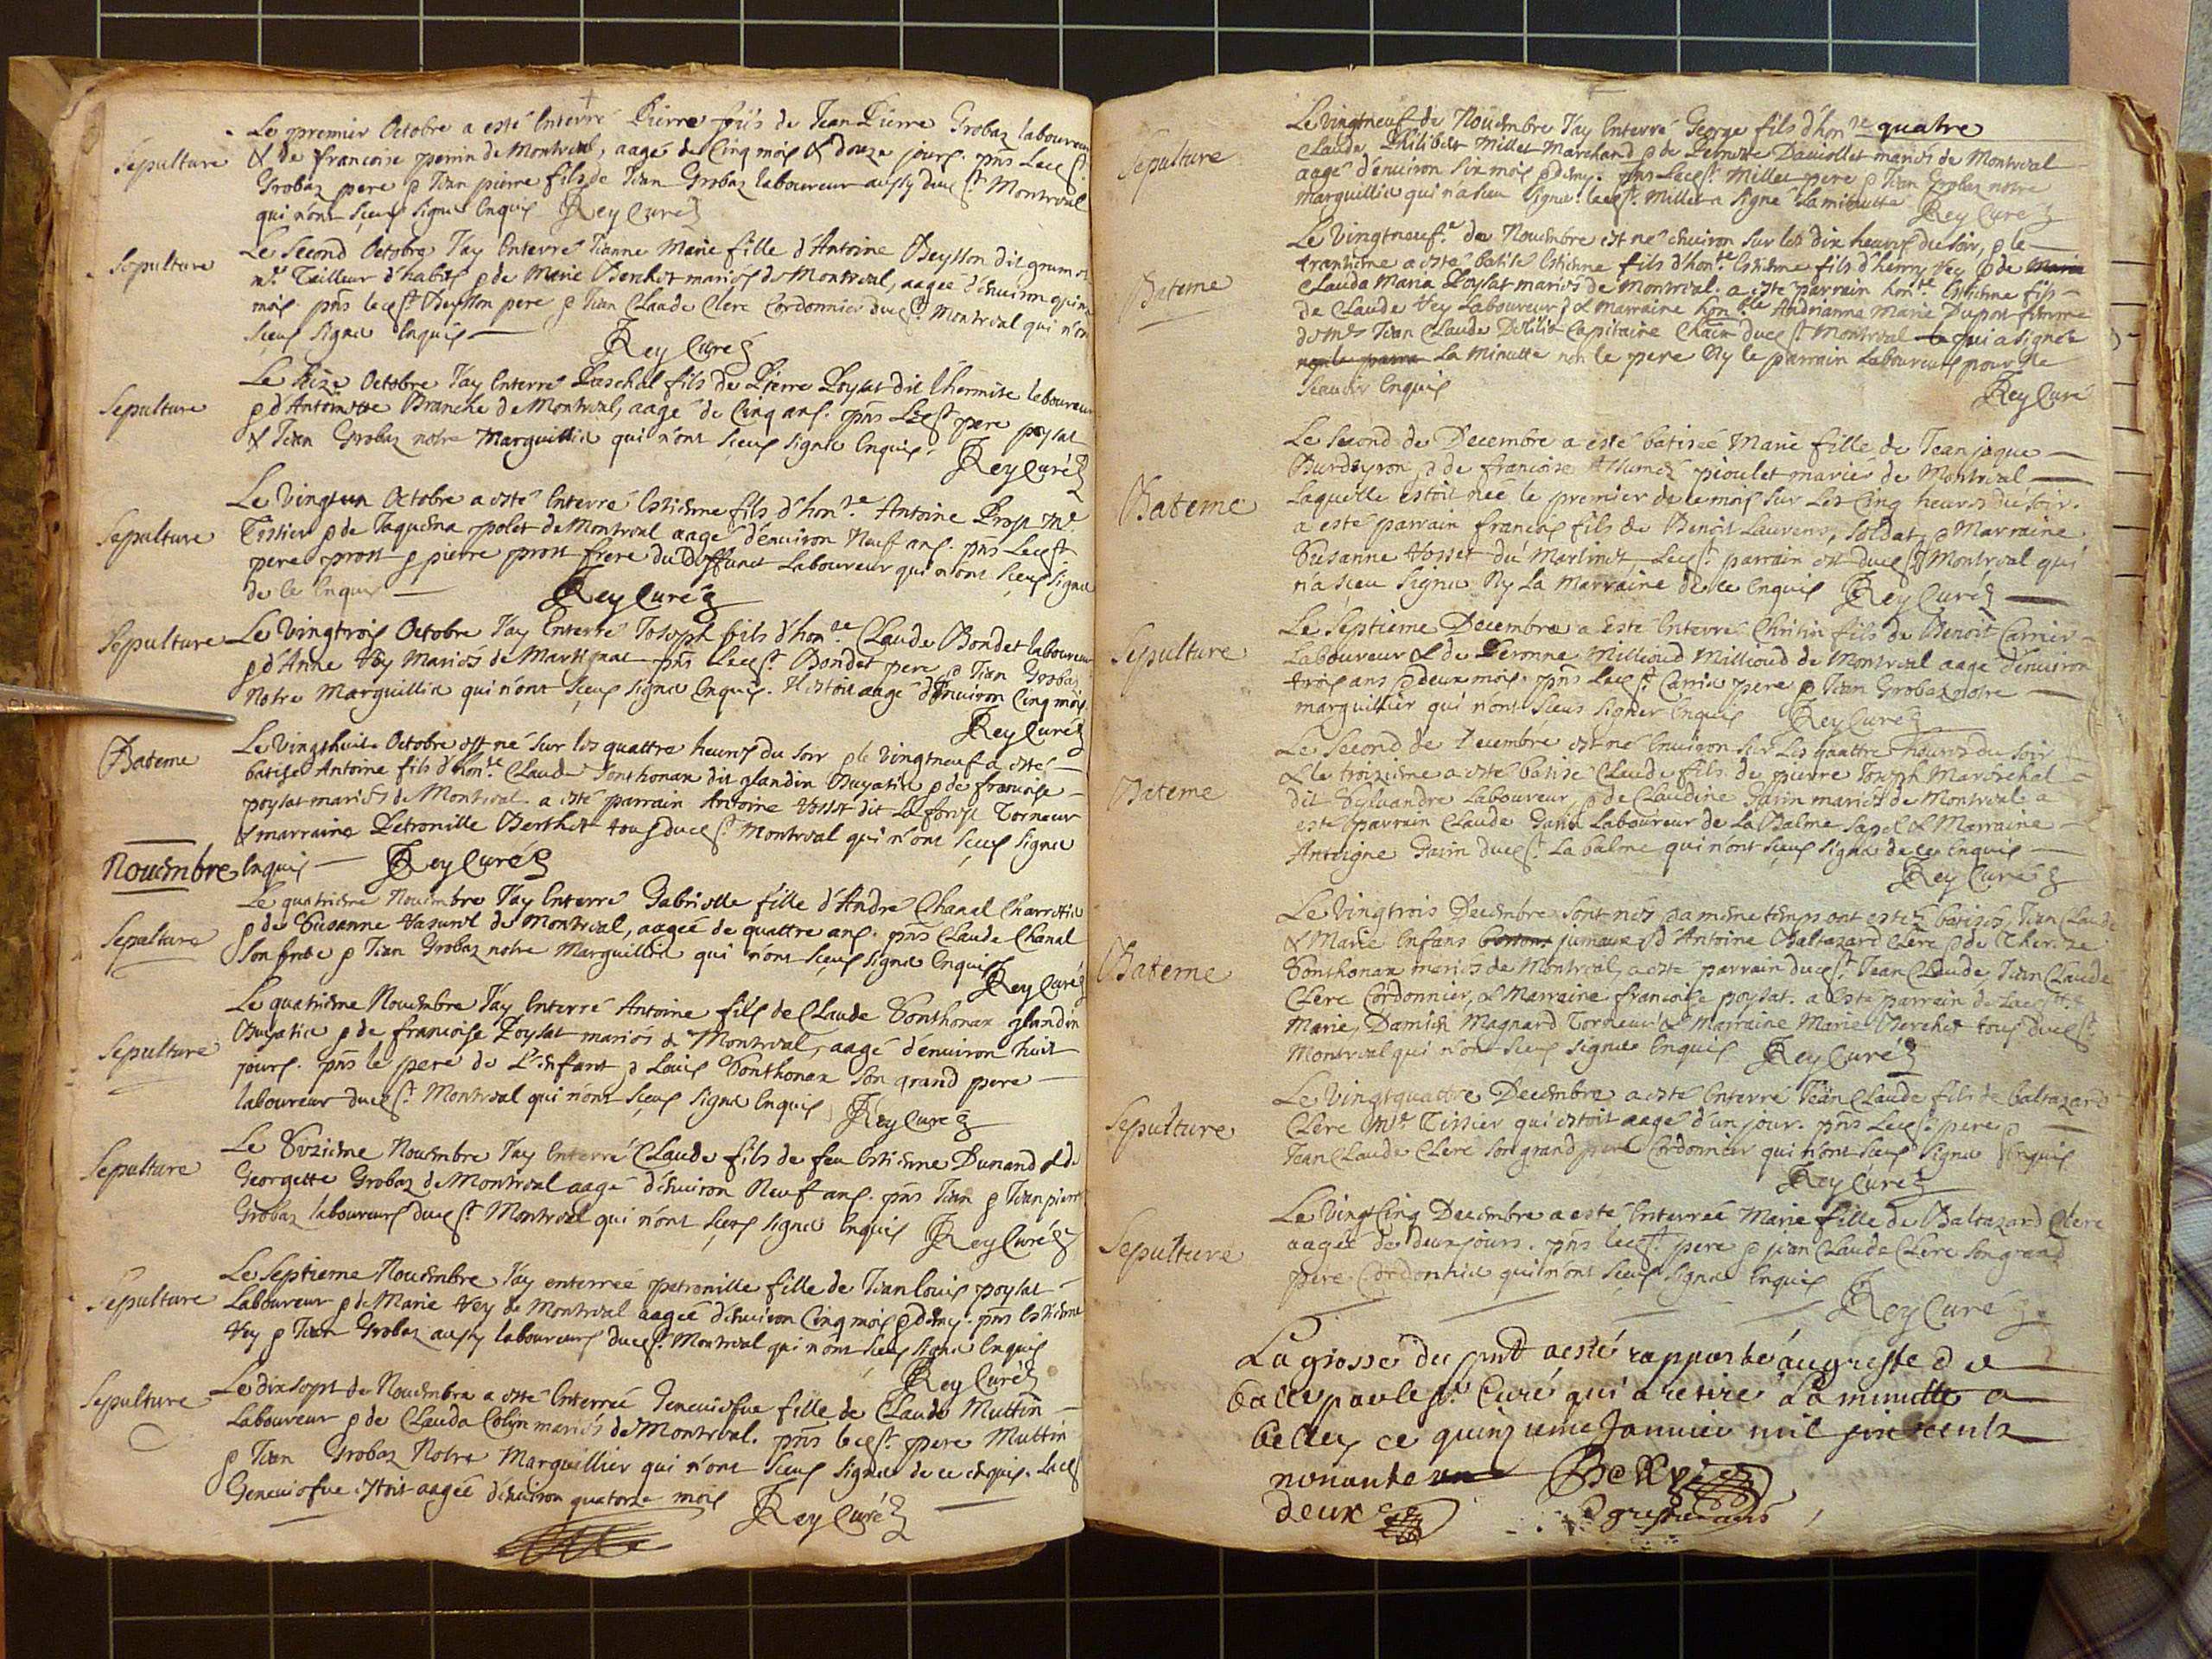 Sepulture
Le premier Octobre a esté Enterré Pierre fils de Jean Pierre Grobaz laboureur
& de francoise perrin de Montreal, aagé de Cinq mois & douze jours. pñs Lecst
Grobaz pere & Jean pierre fils de Jean Grobaz laboureur aussy ducst Montreal
qui n'ont sceus signer Enquis Rey Curé
Sepulture
Le Second Octobre J'ay Enterré Jeanne Marie fille d'Antoine Beysson dit
mre Tailleur d'habits & de Marie Berchet mariés de Montreal, aagée d'enuiron
mois pñs lecst Beysson pere & Jean Claude Clerc Cordonnier ducst Montreal qui n'ont
sceus signer Enquis Rey Curé
Sepulture
Le Seize Octobre J'ay Enterré Paschal fils de Pierre Poysat dit l'hermite laboureur
& d'Antoinette Branche de Montreal, aagé de Cinq ans. pñs Lecst pere poysat
& Jean Grobaz notre Marguillier qui n'ont sceus signer Enquis. Rey Curé
Sepulture
Le Vingtun Octobre a esté Enterré Estienne fils d'honre Antoine Prost Mre
Tissier & de Jaquema polet de Montreal aagé d'enuiron Neuf ans. pñs Lecst
pere prost & pierre prost frere du Deffunct Laboureur qui n'ont sceus signer
de ce Enquis Rey Curé
Sepulture
Le Vingtrois Octobre J'ay Enterré Joseph fils d'honre Claude Bondet laboureur
& d'Anne Vey Mariés de Martignat pñs Lecst Bondet pere & Jean Grobaz
Notre Marguillier qui n'ont sceus signer Enquis. Il estoit aagé d'Enuiron Cinq mois
Rey Curé
Bateme
Le Vingthuit Octobre est né sur les quattre heures du soir & le Vingtneuf a esté
batisé Antoine fils d'honte Claude Sonthonax dit glandin Buyatier & de francoise
poysat mariés de Montreal. a esté parrain Antoine Vosset dit La forest Torneur
& marraine Petronille Berthet tous ducst Montreal qui n'ont sceus signer
Enquis Rey Curé
Nouembre
Sepulture
Le quatrieme Nouembre J'ay Enterré Gabrielle fille d'André Chanal Charrotier
& de Susanne de Montreal, aagée de quattre ans. pñs Claude Chanal
Son frere & Jean Grobaz notre Marguillier qui n'ont sceus signer Enquis
Rey Curé
Sepulture
Le quatrieme Nouembre J'ay Enterré Antoine fils de Claude Sonthonax glandin
Buyatier & de francoise Poysat mariés de Montreal, aagé d'enuiron huit
jours. pñs le pere de L'enfant & Louis Sonthonax Son grand pere
laboureur ducst Montreal qui n'ont sceus signer Enquis Rey Curé
Sepulture
Le Sixieme Nouembre J'ay Enterré Claude fils de feu Estienne Dunand & de
Georgette Grobaz de Montreal aagé d'enuiron Neuf ans. pñs Jean & Jean pierre
Grobaz laboureurs ducst Montreal qui n'ont sceus signer Enquis Rey Curé
Sepulture
Le Septieme Nouembre J'ay enterrée petronille fille de Jean louis poysat
Laboureur & de Marie Vey de Montreal aagée d'enuiron Cinq mois & demy. pñs Estienne
Vey & Jean Grobaz aussy laboureurs ducst Montreal qui n'ont sceus signer Enquis
Rey Curé
Sepulture
Le dixsept de Nouembre a esté Enterrée Geneuiefue fille de Claude Muttin
Laboureur & de Clauda Colin mariés de Montreal. pñs lecst pere Muttin
& Jean Grobaz Notre Marguillier qui n'ont sceus signer de ce enquis. Lacst
Geneuiefue estoit aagée d'enuiron quatorze mois Rey Curé
Sepulture
Le Vingtneuf de Nouembre J'ay Enterré George fils d'honre quatre
Claude Philibert Millet Marchand & de Pernette Dauiollet mariés de Montreal
aagé d'enuiron Six mois & demy. pñs Lecst Millet pere & Jean Grobaz notre
marguillier qui n'a sceu signer. lecst Millet a signé la minutte Rey Curé
Bateme
Le Vingtneufe de Nouembre est né enuiron sur les dix heures du soir, & le
trantieme a esté batisé Estienne fils d'honte Estienne fils d'henry Vey & de Maria
Clauda Maria Poysat mariés de Montreal. a esté parrain honte Estienne fils
de Claude Vey Laboureur & Marraine honble Andrianne Marie Dupon femme
de Mre Jean Claude Capitaine ducst Montreal qui a signée
La Minutte non le pere Ny le parrain Laboureurs pour Ne
Scauoir Enquis
Rey Curé
Bateme
Le Second de Decembre a esté batisée Marie fille de Jean jaque
Burdeyron & de francoise pioulet mariés de Montreal
Laquelle estoit née le premier de ce mois sur Les Cinq heures du soir.
a esté parrain francois fils de Benoit Laurent, Soldat, & Marraine
Susanne Vosset du Martinet, Lecst parrain est ducst Montreal qui
n'a sceu signer Ny La Marraine de ce Enquis Rey Curé
Sepulture
Le Septieme Decembre a Esté Enterré Christin fils de Benoit Carrier
Laboureur & de Peronne Millioud Millioud de Montreal aagé d'enuiron
trois ans & deux mois. pñs Lecst Carrier pere & Jean Grobaz notre
marguillier qui n'ont sceus signer Enquis Rey Curé
Bateme
Le Second de Decembre est né Enuiron sur Les quattre heures du soir
& le troizieme a esté batisé Claude fils de pierre Joseph Mareschal
dit Syluandre Laboureur, & de Claudine Garin mariés de Montreal a
esté parrain Claude Garin Laboureur de La Balme Sapel & Marraine
Antoigne Garin ducst La balme qui n'ont sceus signer de ce Enquis
Rey Curé
Bateme
Le Vingtrois Decembre sont nés & a meme temps ont estez batisés Jean Claude
& Marie Enfans bessons jumeaux d'Antoine Baltazard Clerc & de Thereze
Sonthonax mariés de Montreal, a esté parrain ducst Jean Claude, Jean Claude
Clerc Cordonnier, & Marraine francoise poysat. a Esté parrain de Lacste
Marie, Damien Magnard Torneur & Marraine Marie Berchet tous ducst
Montreal qui n'ont sceus signer Enquis Rey Curé
Sepulture
Le Vingtquattre Decembre a esté Enterré Jean Claude fils de baltazard
Clerc Mre Tissier qui estoit aagé d'un jour. pñs Lecst pere &
Jean Claude Clerc son grand pere Cordonnier qui n'ont sceus signer Enquis
Rey Curé
Sepulture
Le Vingt Cinq Decembre a esté Enterrée Marie fille de Baltazard Clerc
aagée de deux jours. pñs lecst pere & jean Claude Clerc son grand
pere Cordonnier qui n'ont sceus signer Enquis
Rey Curé
La grosse du pnt a esté rapporté au greffe de
balley par le sr Curé qui a retiré La minutte a
belley ce quinzieme Januier mil six cents
nonante un
deux